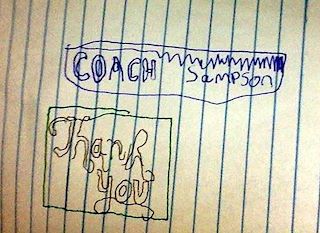 COACH
Sampson
Thank
you